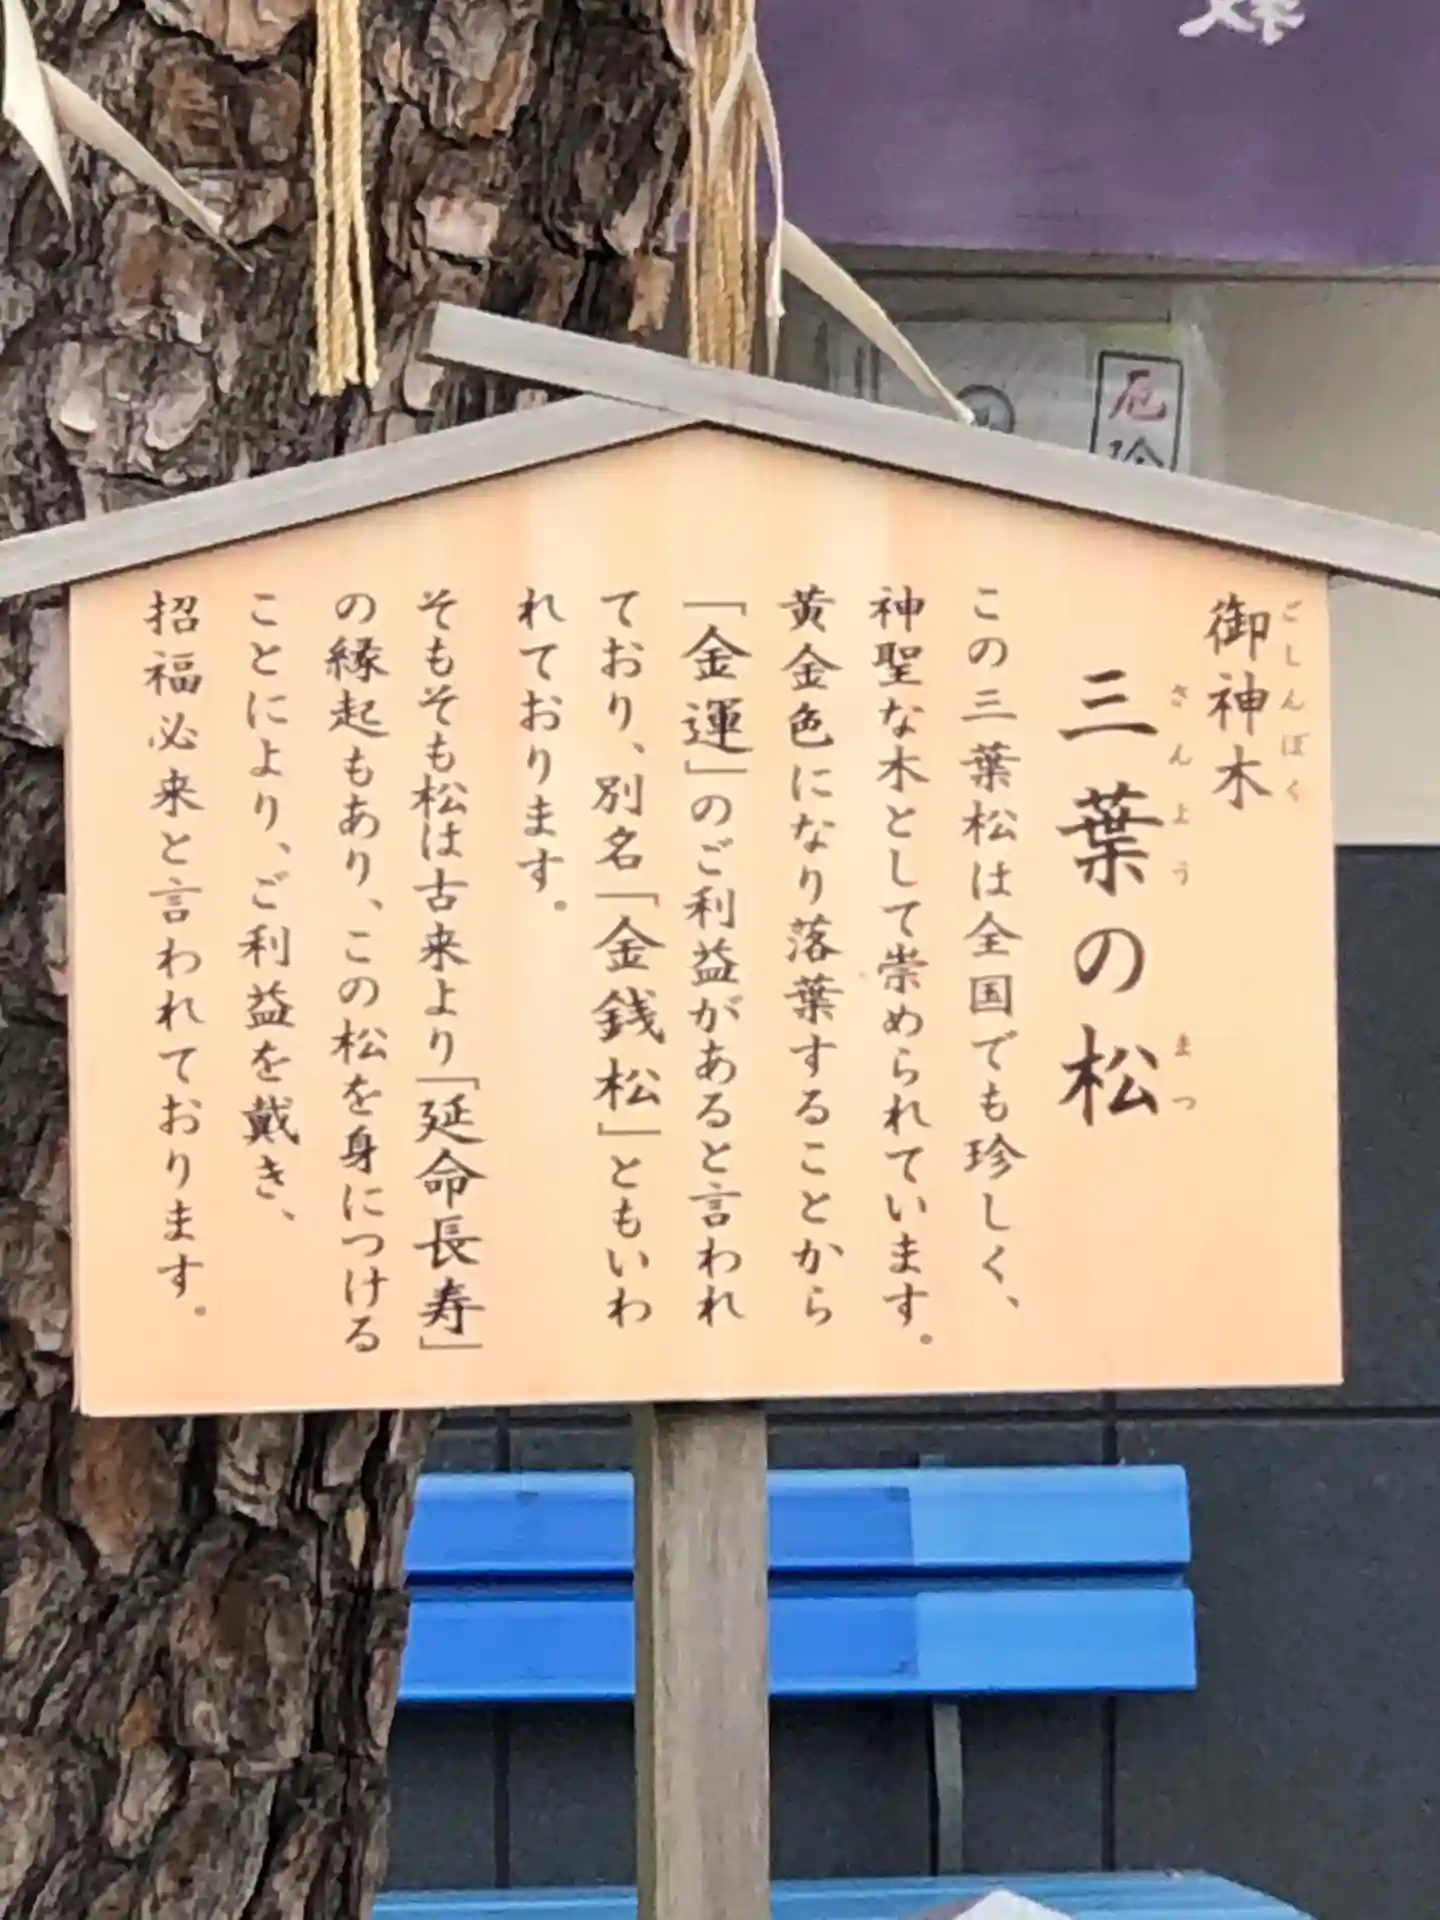 御神木
ごしんぼく
三葉の松
さんようまつ
この三葉松は全国でも珍しく、
神聖な木として崇められています。
黄金色になり落葉することから
「金運」のご利益があると言われ
ており、別名「金銭松」ともいわ
れております。
そもそも松は古来より「延命長寿」
の縁起もあり、この松を身につける
ことにより、ご利益を戴き、
招福必来と言われております。
厄